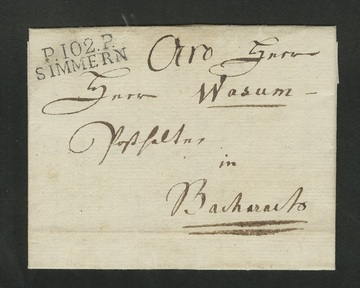 P.102.P.
SIMMERN
Herr
Herr Wasum
Posthalter
in
Bacharach